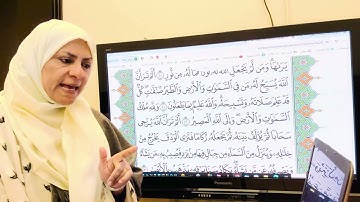 يَرَىٰهَا وَمَن لَّمْ يَجْعَلِ ٱللَّهُ لَهُۥ نُورًا فَمَا لَهُۥ مِن نُّورٍ ۝ أَلَمْ تَرَ أَنَّ
ٱللَّهَ يُسَبِّحُ لَهُۥ مَن فِى ٱلسَّمَٰوَٰتِ وَٱلْأَرْضِ وَٱلطَّيْرُ صَٰٓفَّٰتٍ كُلٌّ
قَدْ عَلِمَ صَلَاتَهُۥ وَتَسْبِيحَهُۥ وَٱللَّهُ عَلِيمٌۢ بِمَا يَفْعَلُونَ ۝ وَلِلَّهِ مُلْكُ
ٱلسَّمَٰوَٰتِ وَٱلْأَرْضِ وَإِلَى ٱللَّهِ ٱلْمَصِيرُ ۝ أَلَمْ تَرَ أَنَّ ٱللَّهَ يُزْجِى
سَحَابًا ثُمَّ يُؤَلِّفُ بَيْنَهُۥ ثُمَّ يَجْعَلُهُۥ رُكَامًا فَتَرَى ٱلْوَدْقَ يَخْرُجُ مِنْ
خِلَٰلِهِۦ وَيُنَزِّلُ مِنَ ٱلسَّمَآءِ مِن جِبَالٍ فِيهَا مِنۢ بَرَدٍ فَيُصِيبُ بِهِۦ مَن يَشَآءُ
Panasonic